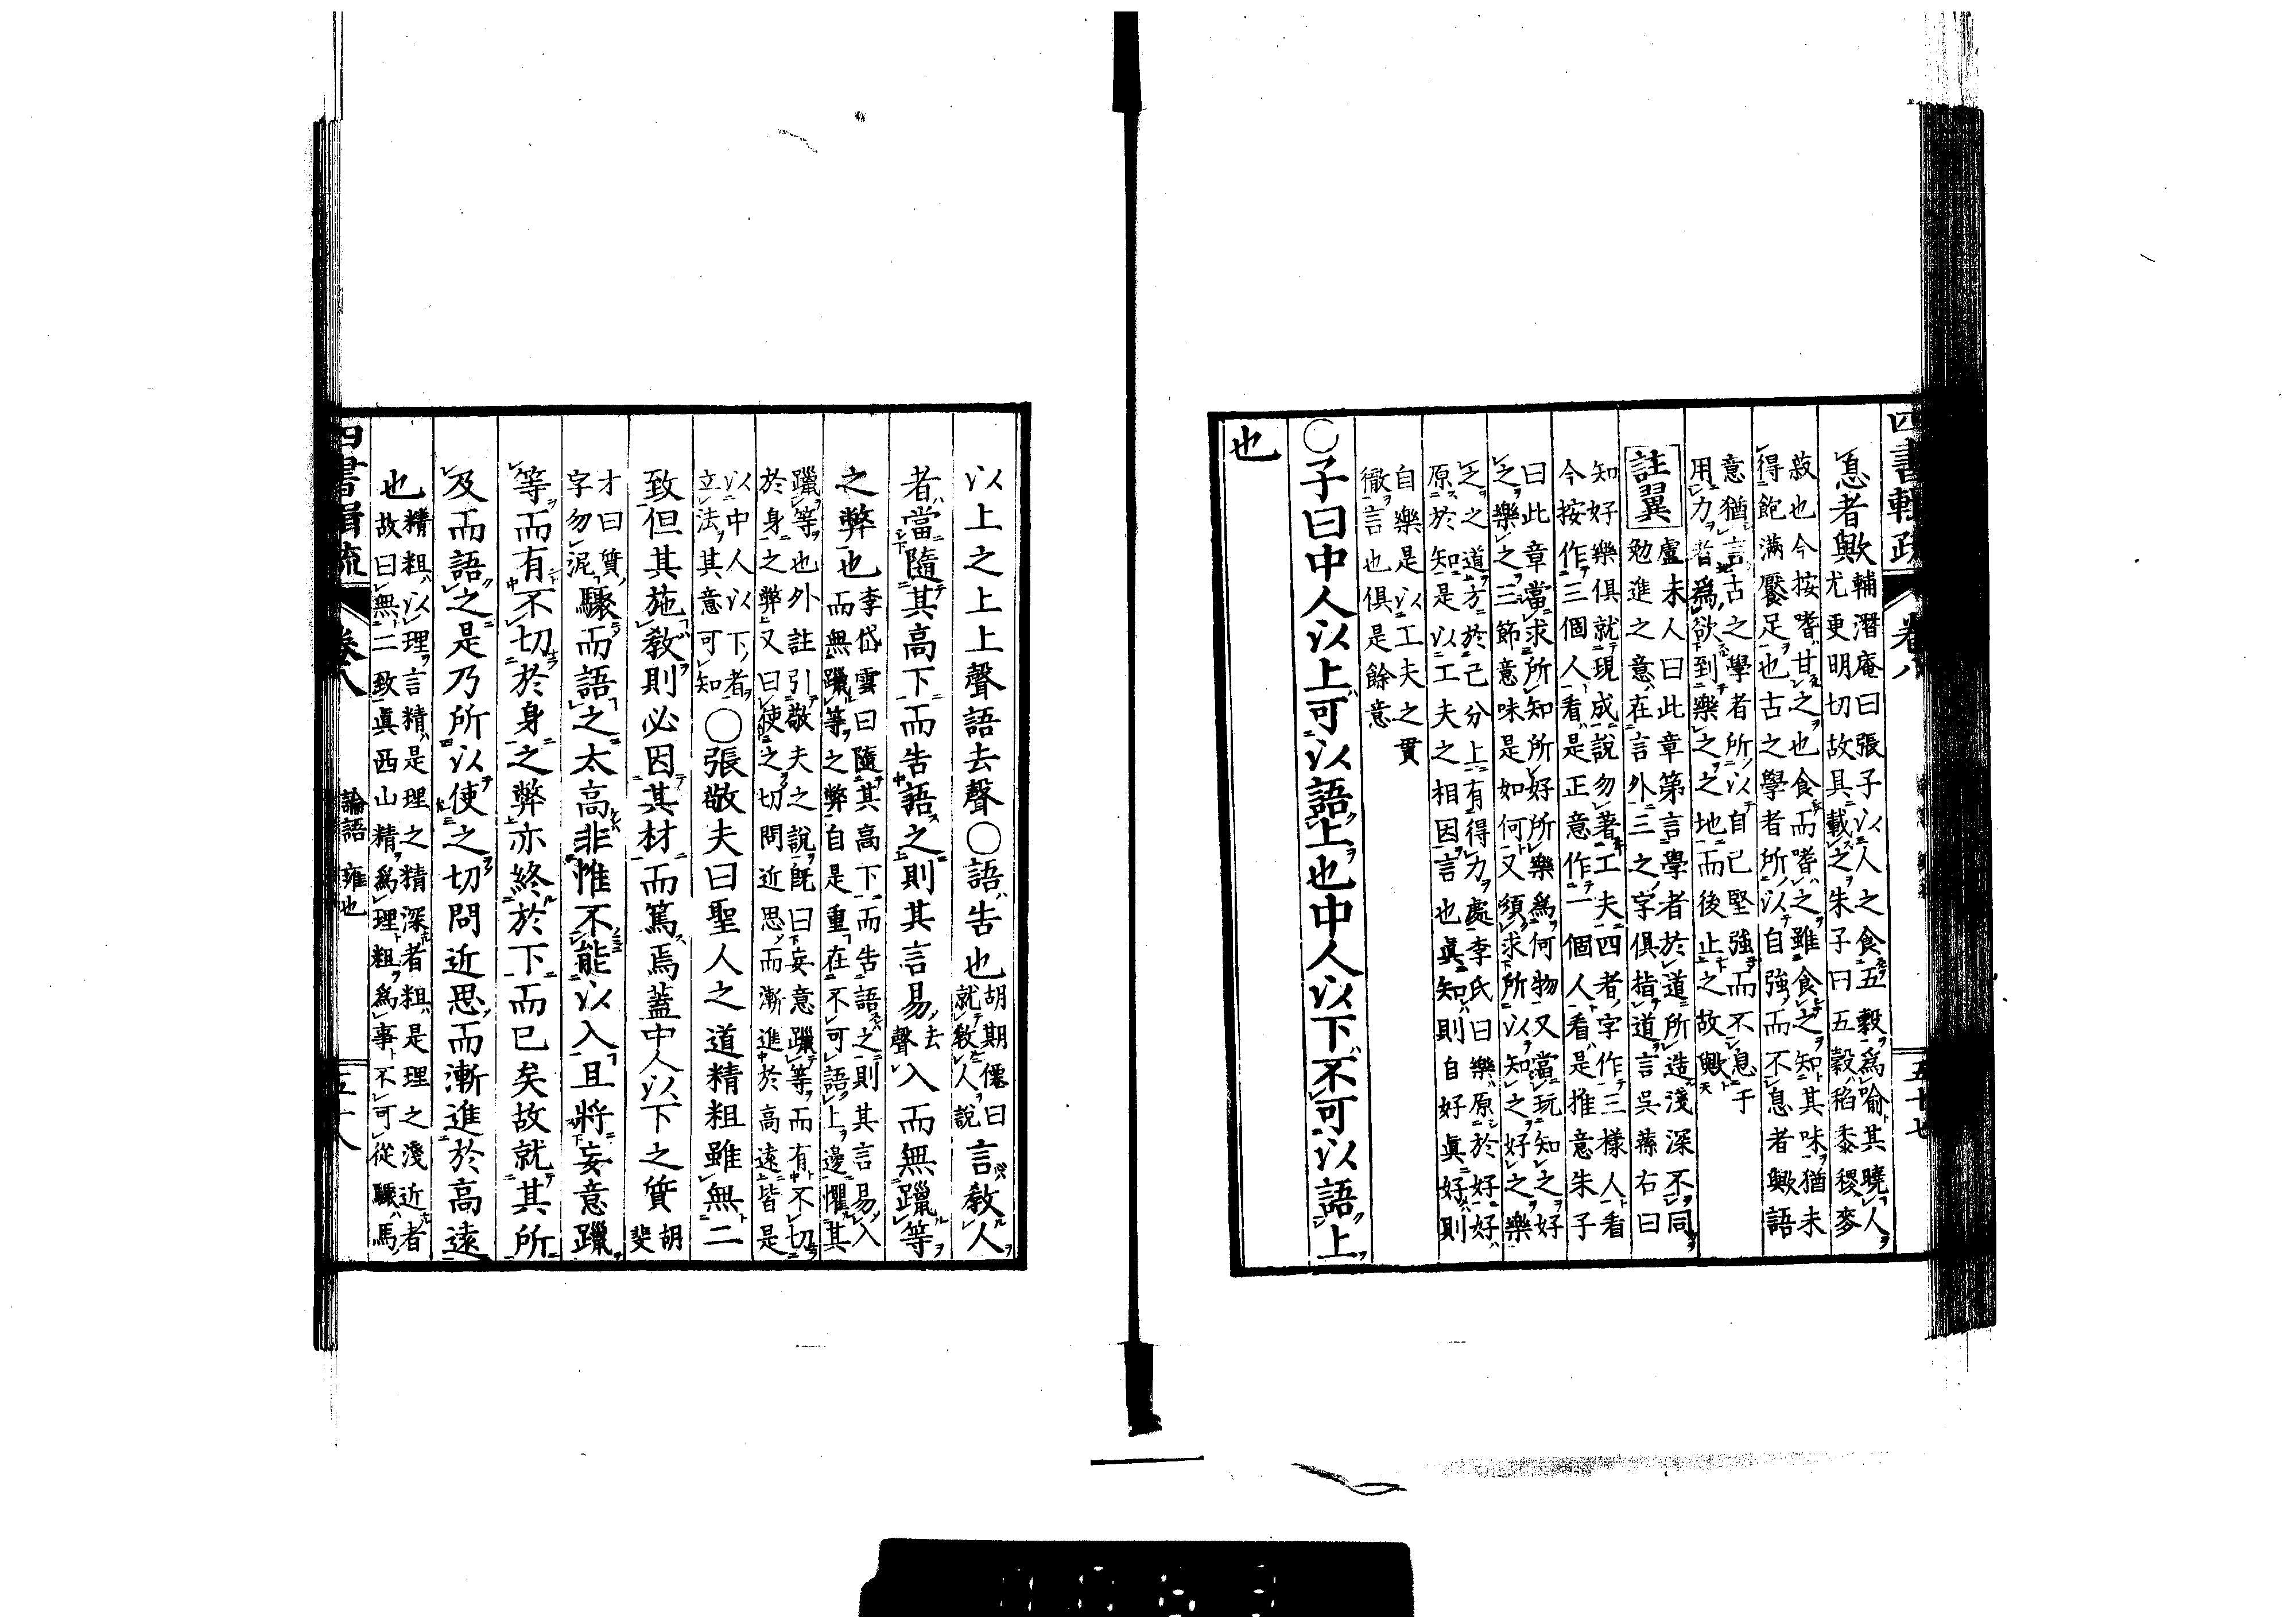 四書輯疏 卷八 五十七
息者歟輔潛庵曰張子以人之食五穀爲喻其曉人
尤更明切故具載之朱子曰五穀稻黍稷麥
菽也今按嗜甘之也食而嗜之雖食之知其味猶未
得飽滿饜足也古之學者所以自強而不息者歟語
意猶言古之學者所以自已堅強而不息于
用力者爲欲到樂之之地而後止之故歟
註翼盧未人曰此章第言學者於道所造淺深不同
勉進之意在言外三之字俱指道言吳蓀右曰
知好樂俱就現成說勿著工夫四者字作三樣人看
今按作三個人看是正意作一個人看是推意朱子
曰此章當求所知所好所樂爲何物又當玩知之好
之樂之三節意味是如何又須求所以知之好之樂
之之道方於己分上有得力處李氏曰樂原於好好
原於知是以工夫之相因言也眞知則自好眞好則
自樂是以工夫之貫
徹言也俱是餘意
○子曰中人以上可以語上也中人以下不可以語上
也
以上之上上聲語去聲○語告也胡期僊曰
就敎人說言敎人
者當隨其高下而告語之則其言易去聲入而無躐等
之弊也李岱雲曰隨其高下而告語之則其言易入
而無躐等之弊自是重在不可語上邊懼其
躐等也外註引敬夫之說旣曰妄意躐等而有不切
於身之弊又曰使之切問近思而漸進於高遠皆是
以中人以下者
立法其意可知○張敬夫曰聖人之道精粗雖無二
致但其施敎則必因其材而篤焉蓋中人以下之質胡斐
才曰質
字勿泥驟而語之太高非惟不能以入且將妄意躐
等而有不切於身之弊亦終於下而已矣故就其所
及而語之是乃所以使之切問近思而漸進於高遠
也精粗以理言精是理之精深者粗是理之淺近者
故曰無二致眞西山精爲理粗爲事不可從驟馬
四書輯疏 卷八 論語 雍也 五十八